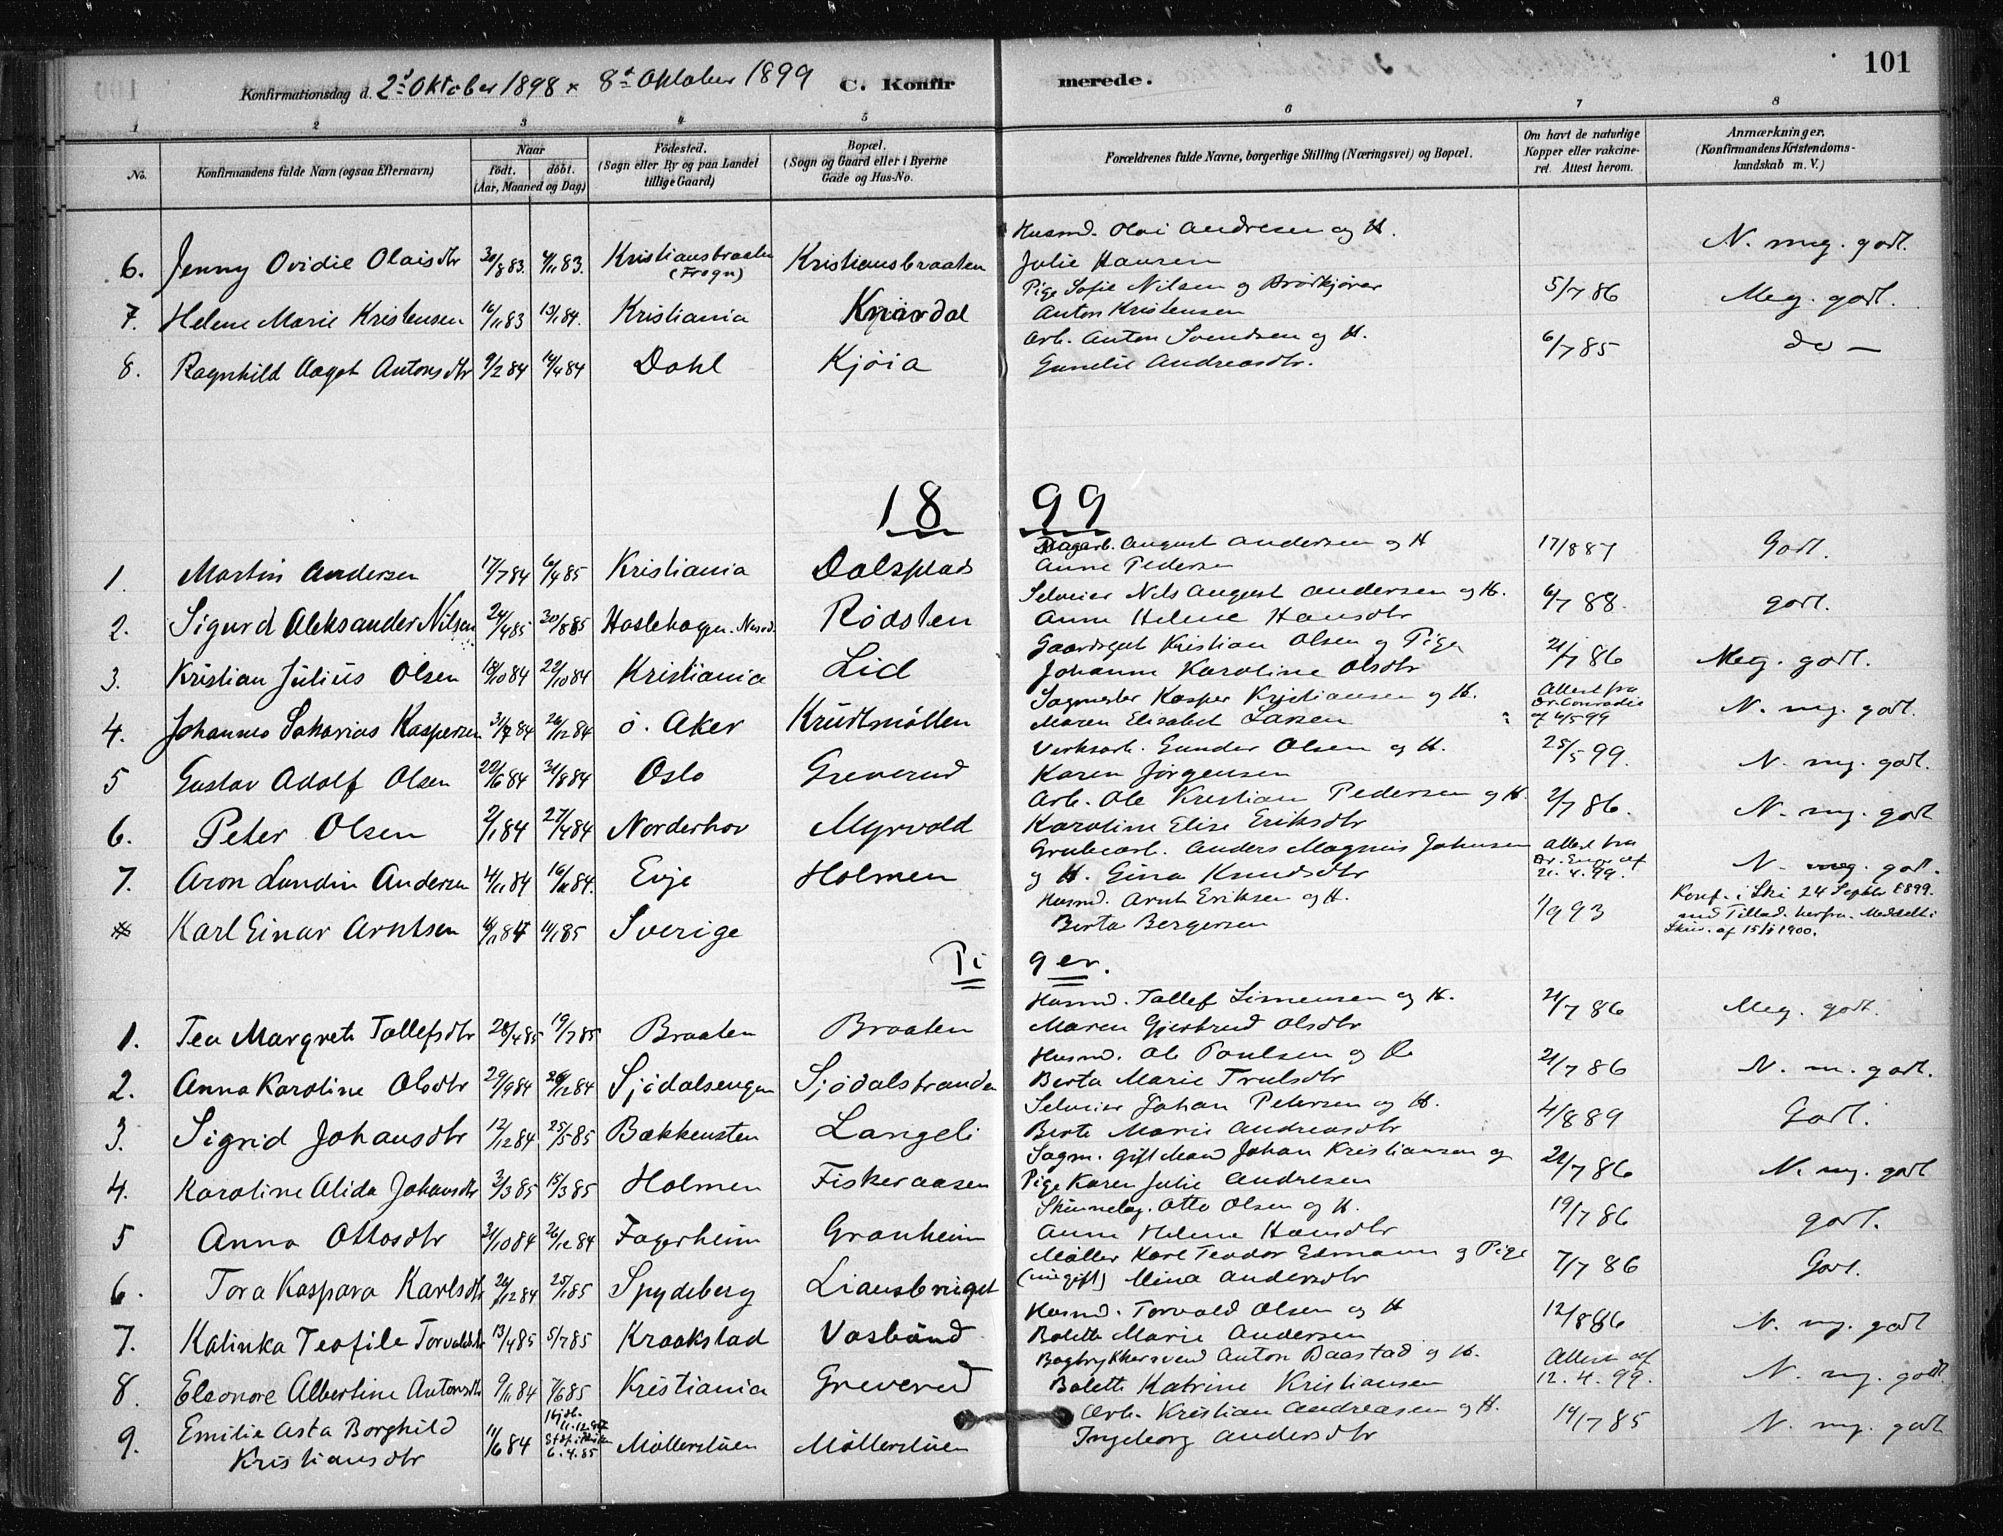 101
Konfirmationsdag d. 2d Oktober 1898 x 8d Oktober 1899 C. Konfirmerede.
1 2 3 4 5 6 7 8
No. Konfirmandens fulde Navn (ogsaa Efternavn) Naar födt. döbt. (Aar, Maaned og Dag) Födested. (Sogn eller By og paa Landet tillige Gaard) Bopæl. (Sogn og Gaard eller i Byerne Gade og Hus-No. Forældrenes fulde Navne, borgerlige Stilling (Næringsvei) og Bopæl. Om havt de naturlige Kopper eller vakcineret. Attest herom. Anmærkninger. (Konfirmandens Kristendomskundskab m. V.)
6. Jenny Ovidie Olaisdtr 30/8 83. 4/11 83. Kristiansbraaten (Frogn) Kristiansbraaten Husmd. Olai Andresen og H. Julie Hansen N. meg. godt.
7. Helene Marie Kristensen 16/11 83 13/1 84. Kristiania Knardal Pige Sofie Nilsen og Brødkjører Anton Kristensen 5/7 86 Meg. godt.
8. Ragnhild Aaget Antonsdtr 9/2 84 14/4 84 Dahl Kjøia Arb. Anton Svendsen og H. Gunelie Andreasdtr. 6/7 85 do —
1899
1. Martin Andersen 17/7 84 6/4 85 Kristiania Dalsplads Dagarb. August Andersen og H Anne Pedersen 17/8 87 Godt.
2. Sigurd Aleksander Nilsen 24/4 85 30/8 85 Haslehagen. Nesod. Rødsten Selveier Nils August Andersen og H. Anne Helene Hansdtr 6/7 88. godt.
3. Kristian Julius Olsen 18/10 84 22/10 84 Kristiania Lid Gaardsgut Kristian Olsen og Pige Johanne Karoline Olsdtr 21/7 86 Meg. godt.
4. Johannes Sakarias Kaspersen 31/7 84 26/12 84 Ö. Aker Krudtmøllen Sagmester Kasper Kristiansen og H. Maren Elisabet Larsen Attest fra Dr. Conradie af 4/5 99 N. mg. godt.
5 Gustav Adolf Olsen 22/6 84 31/8 84 Oslo Greverud Verksarb. Gunder Olsen og H. Karen Jørgensen 25/5 99. N. mg. godt.
6. Peter Olsen 2/1 84 27/4 84 Norderhov Myrvold Arb. Ole Kristian Pedersen og H. Karoline Elise Eriksdtr 2/7 86. N. mg. godt
7. Aron Lundin Andersen 4/11 84 16/11 84. Enje Holmen Grubearb. Anders Magnus Johnsen og H. Gina Knudsdtr Attest fra Dr. af 21.4.99. N. meg. godt.
Karl Einar Arntsen 16/11 84 11/1 85 Sverige Husmd. Arnt Eriksen og H. Berta Bergersen 1/9 93 Konf. i Ski 24 Septbr 1899. med Tillad. herfra. Meddelt i Skriv. af 15/1 1900.
Piger.
1. Tea Margrete Tollefsdtr 28/4 85 19/7 85 Braaten Braaten Husmd. Tollef Simensen og H. Maren Gjertrud Olsdtr 21/7 86 Meg. godt.
2. Anna Karoline Olsdtr 29/9 84 26/12 84 Sjødalsengen Sjødalstranden Husmd. Ole Poulsen og H. Berta Marie Trulsdtr 21/7 86 N. m. godt.
3. Sigrid Johansdtr 12/12 84 25/5 85 Bækkensten Langeli Selveier Johan Petersen og H. Berte Marie Andreasdtr 4/8 89 Godt.
4. Karoline Alida Johansdtr 3/3 85 15/3 85 Holmen Fiskeraasen Sagm. gift Mand Johan Kristiansen og Pige Karen Julie Andresen 22/7 86 N. mg. godt
5 Anna Ottosdtr 31/10 84 26/12 84 Fagerheim Granheim Skinnelæg. Otto Olsen og H. Anne Helene Hansdtr 19/7 86 godt.
6. Tora Kaspara Karlsdtr 24/12 84 25/1 85 Spydeberg Liansbruget Møller Karl Teodor Edmann og Pige (ugift) Mina Andersdtr 7/7 86 Godt.
7. Kalinka Teofile Torvaldsdtr 13/4 85 5/7 85 Kraakstad Vasbund Husmd. Torvald Olsen og H Bolette Marie Andersen 12/8 86 N. mg. godt
8. Eleonore Albertine Antonsdtr 9/11 84 7/6 85 Kristiania Greverud Bogtrykkersvend Anton Baastad og H. Bolette Katrine Kristiansen Attest af 12.4.99. N. mg. godt.
9. Emilie Asta Borghild Kristiansdtr 11/6 84 6.4.85 Møllerstuen Møllerstuen Arb. Kristian Andreasen og H. Ingeborg Andersdtr 14/7 85 N. mg. godt